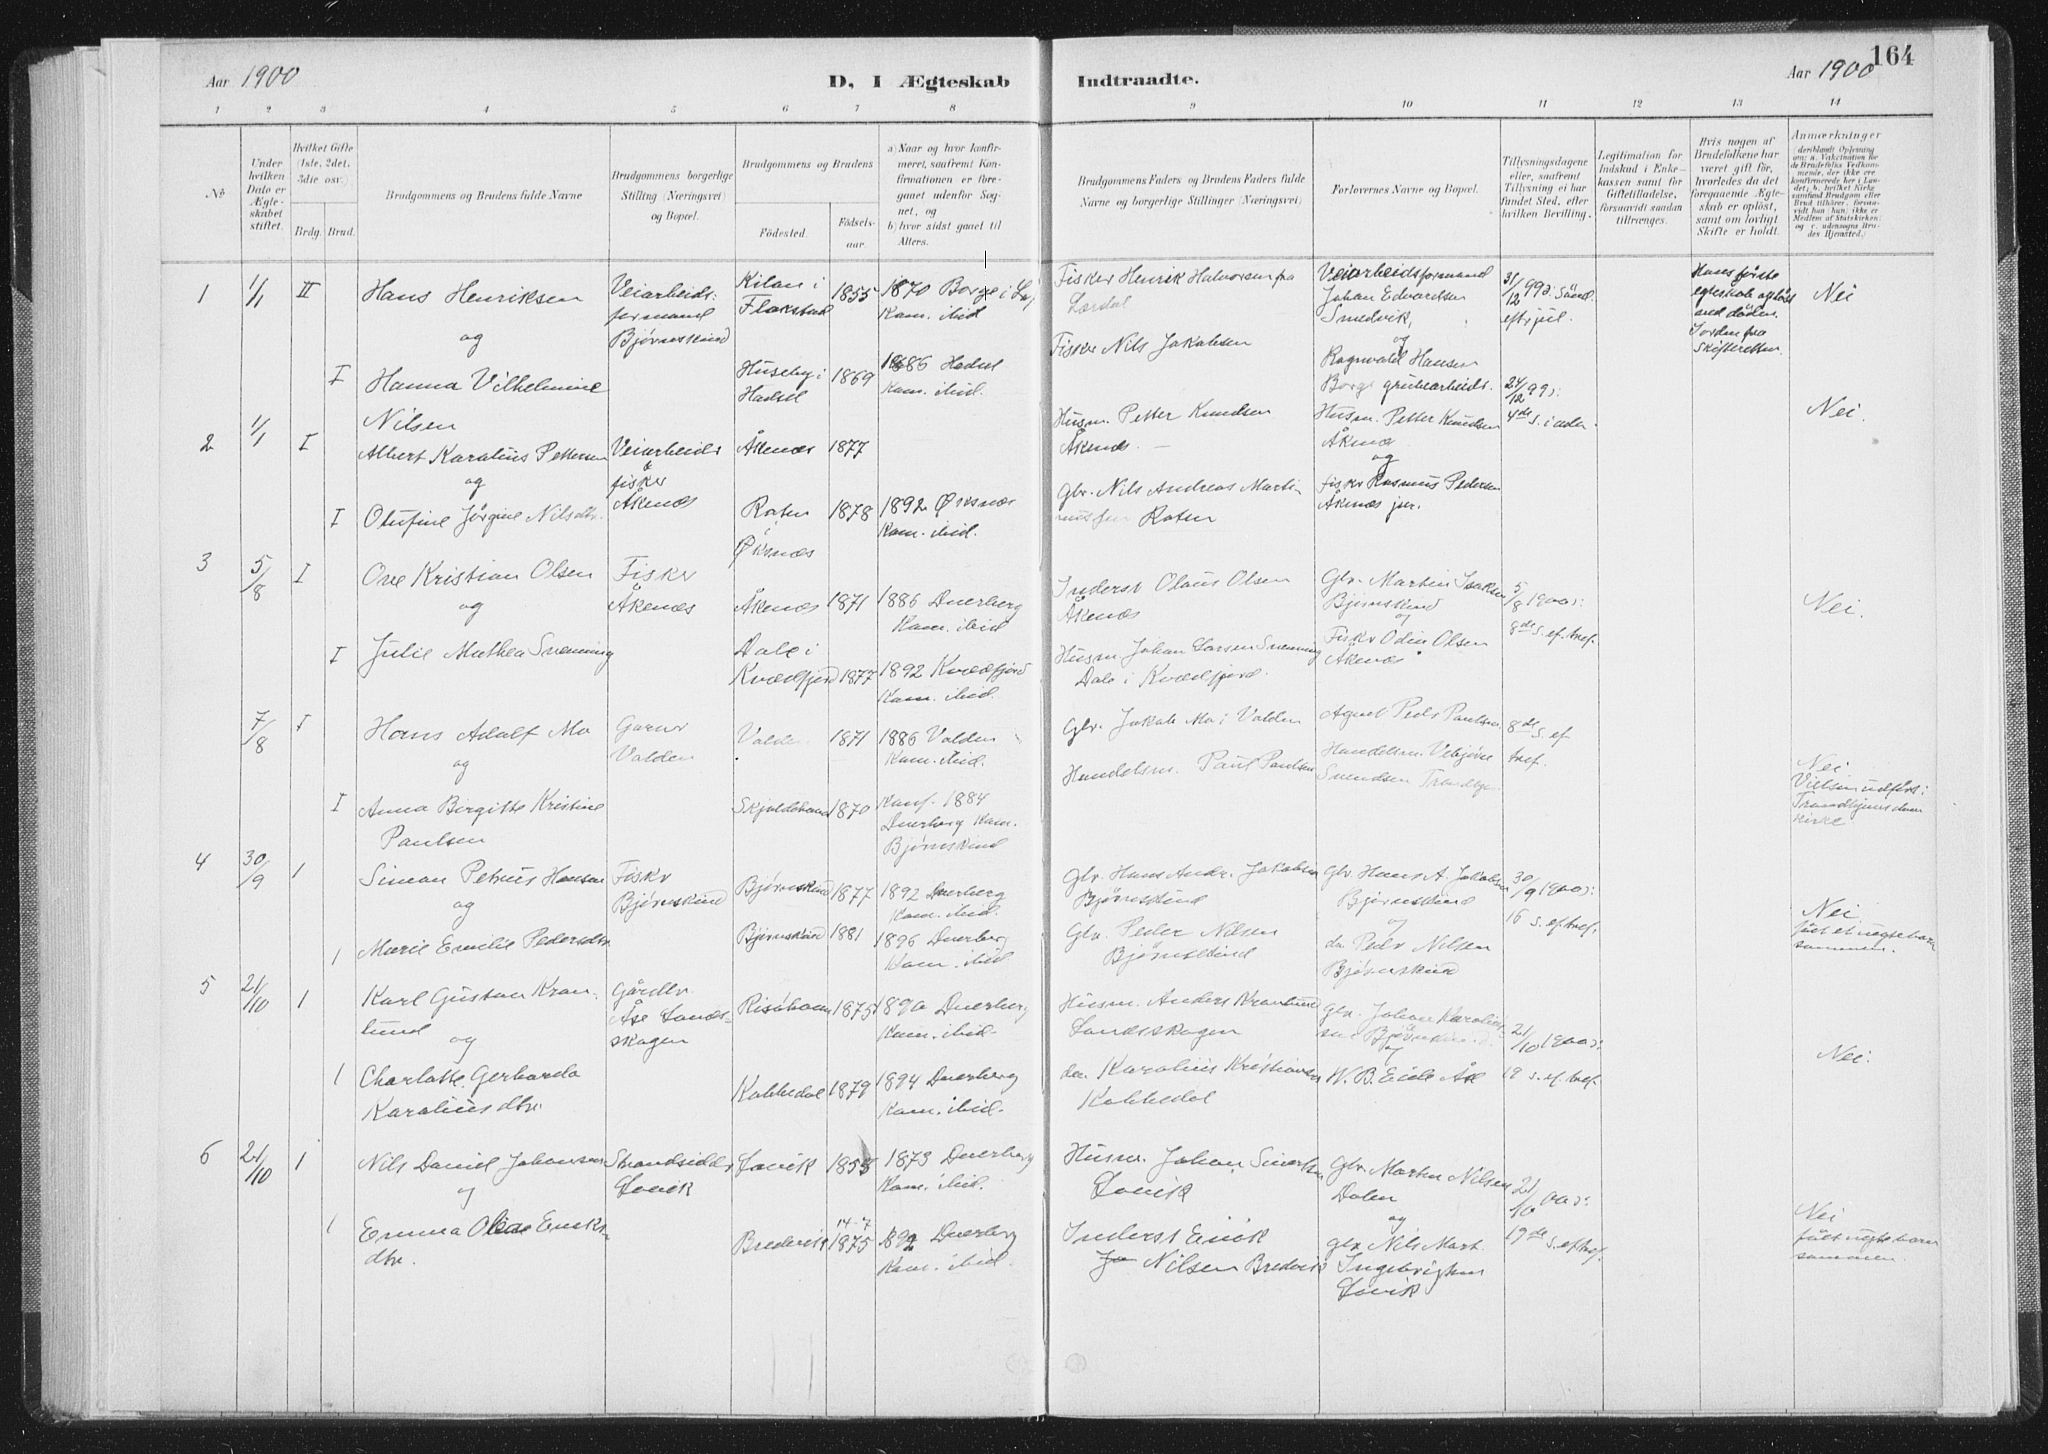 164
Aar 1900
D. I Ægteskab
Indtraadte.
Aar 1900
1 2 3 4 5 6 7 8 9 10 11 12 13 14
No
Under hvilken Dato er Ægteskabet stiftet.
Hvilket Gifte (1ste, 2det, 3die osv.)
Brdg. Brud.
Brudgommens og Brudens fulde Navne
Brudgommens borgerlige Stilling (Næringsvei) og Bopæl.
Brudgommens og Brudens
Födested.
Födselsaar.
a) Naar og hvor konfirmeret, saafremt Konfirmationen er foregaaet udenfor Sognet, og
b) hvor sidst gaaet til Alters.
Brudgommens Faders og Brudens Faders fulde Navne og borgerlige Stillinger (Næringsvei)
Forlovernes Navne og Bopæl.
Tillysningsdagene eller, saafremt Tillysning ei har fundet Sted, efter hvilken Bevilling.
Legitimation for Indskud i Enkekassen samt for Giftetilladelse, forsaavidt saadan tiltrænges.
Hvis nogen af Brudefolkene har været gift før, hvorledes da det foregaaende Ægteskab er oplöst, samt om lovligt Skifte er holdt.
Anmærkninger
1
1/1
II
Hans Henriksen
og
I
Hanna Vilhelmine
Nilsen
Veiarbeids:
formand
Bjørnskind
Kilan i
Flakstad
1855
1870 Borge i Lof
Kom. ibid
Huseby i
Hadsel
1869
1886 Hadsel
Kom. ibid.
Fisker Henrik Halvorsen fra
Lærdal
Fisker Nils Jakobsen
Veiarbeidsformand
Johan Edvardsen
Smedvik,
og
Ragnvald Hansen
Borge grubearbeids.
31/12 99: Sönd.
eft. jul.
Hans første
egteskab opløst
ved döden.
Skifteretten
Nei
2
1/1
I
Albert Karolius Pettersen
og
I
Olufine Jørgine Nilsdtr.
Veiarbeids
&
fisker
Åkenæs
Åkenæs
1877
Roten
i
Øksnæs
1878
1892 Øksnæs
Kom. ibid.
Husm. Petter Knudsen
Åkenæs. —
Gbr. Nils Andreas Marti
nussen Roten
Husm. Petter Knudsen
Åkenæs
og
fisker Rasmus Pedersen
Åkenæs jun.
24/12 99:
4de s. i adv.
Nei.
3
5/8
I
Ove Kristian Olsen
og
I
Julie Mathea Svenning
Fisker
Åkenæs
Åkenæs
1871
1886 Dverberg
Kom. ibid
Dale i
Kvædfjord
1877
1892 Kvædfjord
Kom. ibid.
Inderst Olaus Olsen
Åkenæs
Husm. Johan Larsen Svenning
Dale i Kvædfjord.
Gbr. Martin Isaksen
Bjørnskind
og
Fisker Odin Olsen
Åkenæs
5/8 1900:
8de s. ef. tref.
Nei.
7/8
I
Hans Adolf Mo
og
I
Anna Birgitte Kristine
Paulsen
Garver
Valden
Valden
1871
1886 Valden
Kom. ibid.
Skjoldehavn
1870
Konf. 1884
Dverberg Kom.
Bjørnskind
Gbr. Jakob Mo i Valden
Handelsm. Paul Paulsen
Agent Peder Paulsen
Handelsm. Vebjørn
Svendsen
8de s. ef
tref.
Nei
Vielsen udført i
Trondhjems dom
kirke
4
30/9
1
Simon Petrus Hansen
og
1
Marie Emilie Pedersdtr
Fisker
Bjørnskind
Bjørnskind
1877
1892 Dverberg
Kom. ibid.
Bjørnskind
1881
1896 Dverberg
Kom. ibid.
Gbr. Hans Andr. Jakobsen
Bjørnskind
Gbr. Peder Nilsen
Bjørnskind
Gbr Hans A. Jakobsen
Bjørnskind
og
do. Peder Nilsen
Bjørnskind
30/9 1900:
16 s. ef. tref.
Nei.
født et uegte barn
sammen.
5
21/10
1
Karl Gustav Kron-
lund
og
1
Charlotte Gerharda
Karoliusdtr.
Gårdbr.
Åse Lands-
skogen
Risøhavn
1875
1890 Dverberg
Kom. ibid.
Kobbedal
1879
1894 Dverberg
Kom. ibid.
Husm. Anders Kronlund
Landsskogen
do. Karolius Kristiansen
Kobbedal
gbr. Johan Karolius-
sen Bjørnskind
og
H. B. Eide Åse
21/10 1900:
19 s. ef. tref.
Nei.
6
21/10
1
Nils Daniel Johansen
og
1
Emma Oline Eriks-
dtr.
Strandsidder
Lovik
Lovik
1855
1873 Dverberg
Kom. ibid.
Bredevik
14-7
1875
1892 Dverberg
Kom. ibid.
Husm. Johan Sivertsen
Lovik
Inderst Erik
Nilsen Bredevik
Gbr Morten Nilsen
Dalen
og
gbr Nils Mart.
Ingebrigtsen
Lovik
21/10 00:
19de s. ef tref.
Nei
født uegte barn
sammen